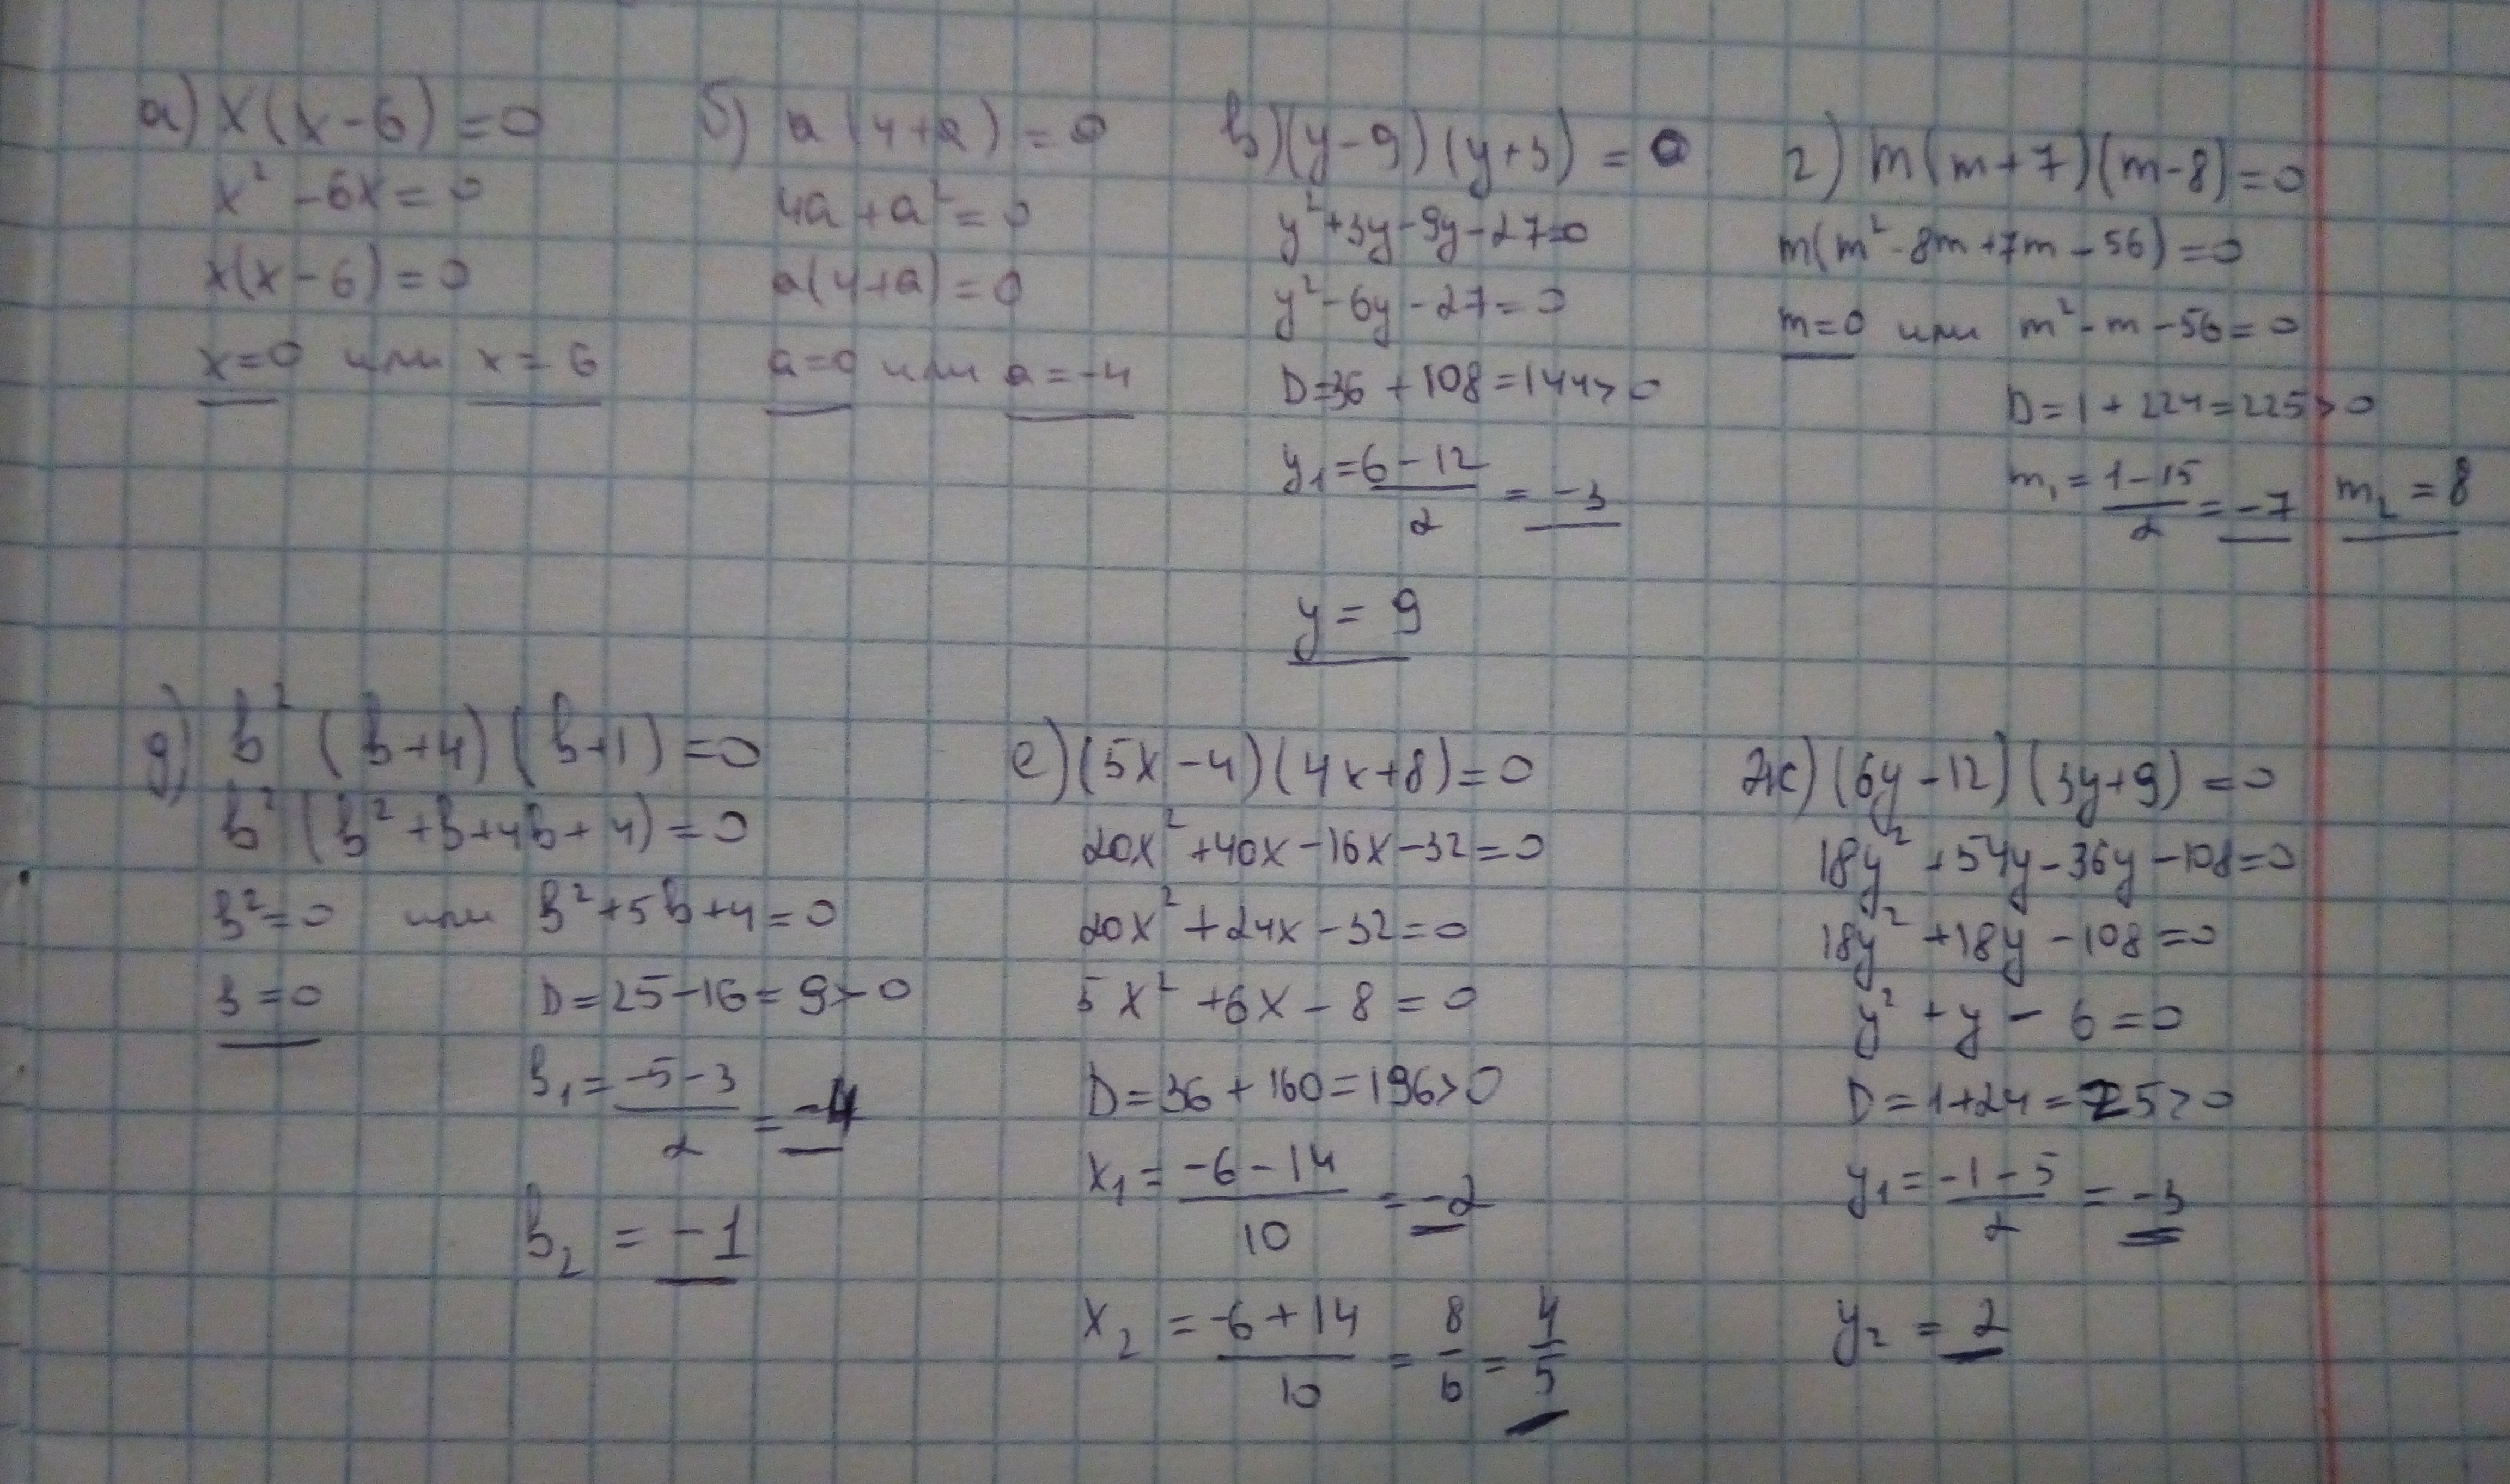 а) x(x-6)=0
x²-6x=0
x(x-6)=0
x=0 или x=6
б) a(4+a)=0
4a+a²=0
a(4+a)=0
a=0 или a=-4
в) (y-9)(y+3)=0
y²+3y-9y-27=0
y²-6y-27=0
D=36+108=144>0
y₁=(6-12)/2=-3
y=9
г) m(m+7)(m-8)=0
m(m²-8m+7m-56)=0
m=0 или m²-m-56=0
D=1+224=225>0
m₁=(1-15)/2=-7 m₂=8
д) b²(b+4)(b+1)=0
b²(b²+b+4b+4)=0
b²=0 или b²+5b+4=0
b=0 D=25-16=9>0
b₁=(-5-3)/2=-4
b₂=-1
е) (5x-4)(4x+8)=0
20x²+40x-16x-32=0
20x²+24x-32=0
5x²+6x-8=0
D=36+160=196>0
x₁=(-6-14)/10=-2
x₂=(-6+14)/10=8/10=4/5
ж) (6y-12)(3y+9)=0
18y²+54y-36y-108=0
18y²+18y-108=0
y²+y-6=0
D=1+24=25>0
y₁=(-1-5)/2=-3
y₂=2